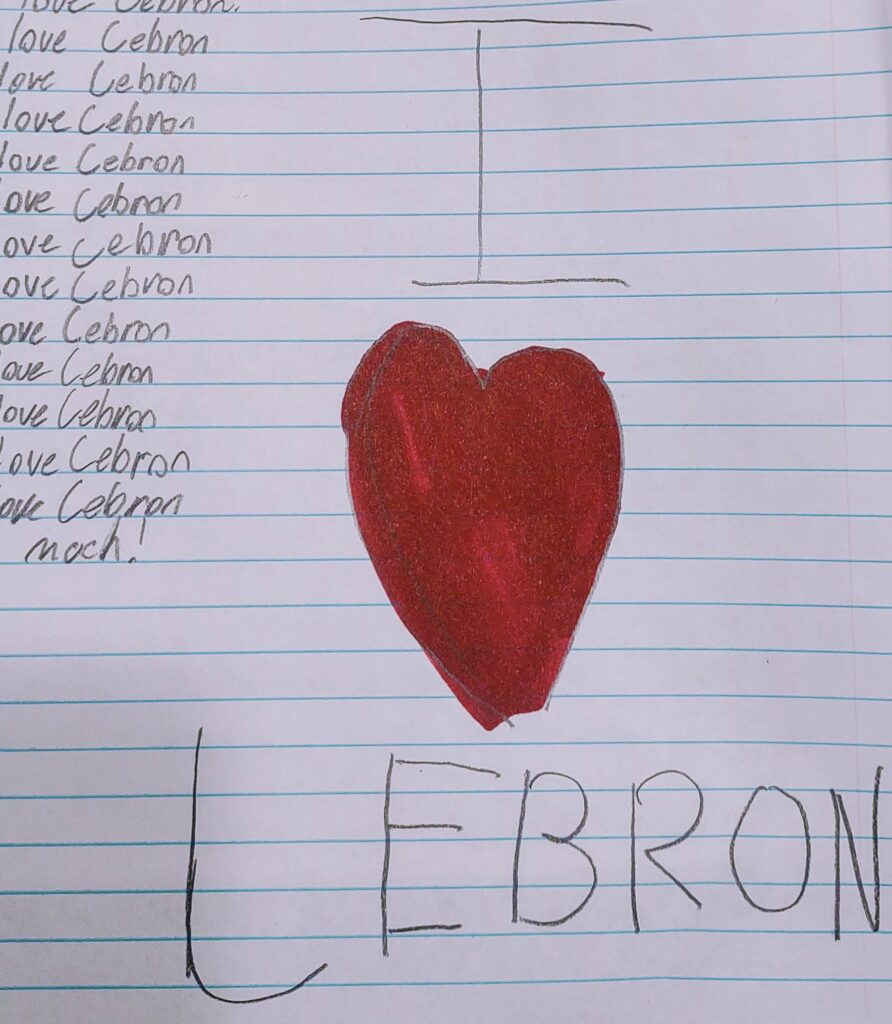 love Lebron.
love Lebron
love Lebron
love Lebron
love Lebron
ove Lebron
ove Lebron
ove Lebron
ove Lebron
love Lebron
love Lebron
Love Lebron
ove Lebron
moch!
I
LEBRON